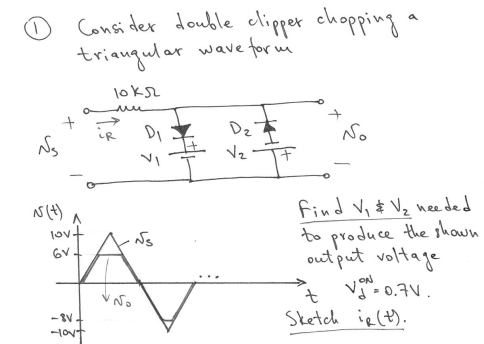 ① Consider double clipper chopping a
triangular waveform
10kΩ
+ iR D1 + D2 +
vs V1 V2 + vo
- -
v(t)
10V vs
6V
vo
...
t
-8V
-10V
Find V1 & V2 needed
to produce the shown
output voltage
Vd^ON = 0.7V.
Sketch iR(t).